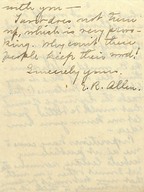 with you —
does not turn
up, which is very provo-
king. Why can't these
people keep their word!
Sincerely yours,
E. R. Allen.